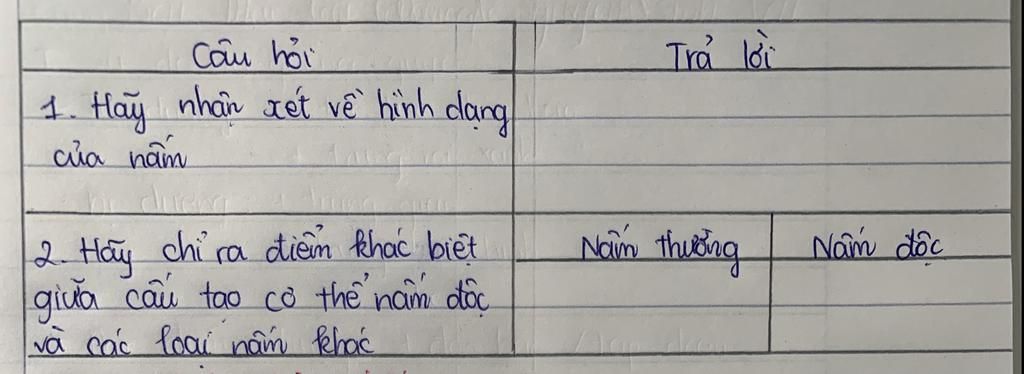 Câu hỏi
Trả lời
1. Hãy nhận xét về hình dạng
của nấm
2. Hãy chỉ ra điểm khác biệt
giữa cấu tạo cơ thể nấm độc
và các loại nấm khác
Nấm thường
Nấm độc